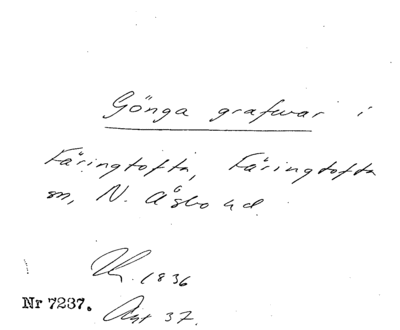 Gönga grafwar i
Färingtofta, Färingtofta
sn, N. Åsbo hd.
1836
Nr 7237. Avst 37.